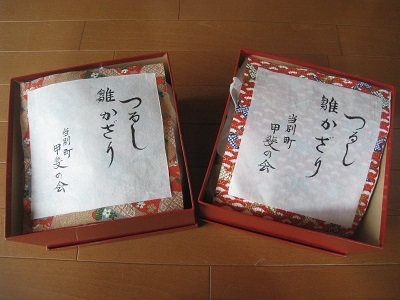 つるし
雛かざり
当別町
甲斐の会
つるし
雛かざり
当別町
甲斐の会